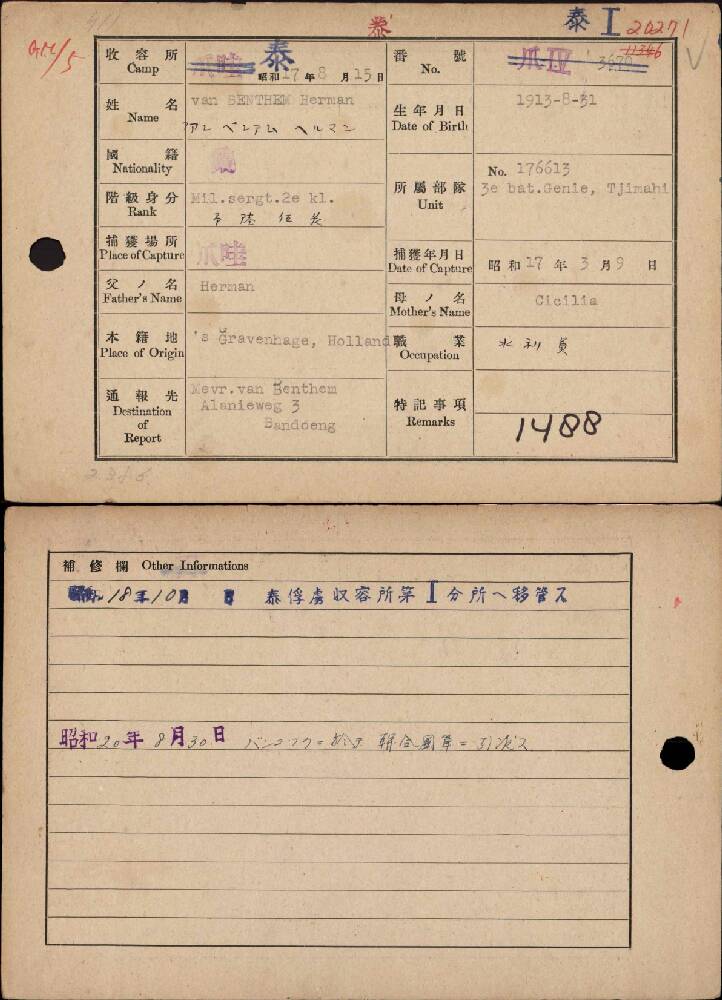 泰 泰 I 20271
11346
收容所 Camp 爪哇 泰 昭和17年8月15日
番號 No. 爪IV 3670
姓名 Name van BENTHEM Herman
生年月日 Date of Birth 1913-8-31
國籍 Nationality 蘭
階級身分 Rank Mil.sergt.2e kl.
所屬部隊 Unit No. 176613
3e bat.Genie, Tjimahi
捕獲場所 Place of Capture 爪哇
捕獲年月日 Date of Capture 昭和17年3月9日
父ノ名 Father's Name Herman
母ノ名 Mother's Name Cicilia
本籍地 Place of Origin 's Gravenhage, Holland
職業 Occupation 水利員
通報先 Destination of Report Mevr.van Benthem
Alanieweg 3
Bandoeng
特記事項 Remarks 1488
補修欄 Other Informations
昭和18年10月 日 泰俘虜収容所第I分所ヘ移管ス
昭和20年8月30日 バンコクニ於テ聯合國軍ニ引渡ス